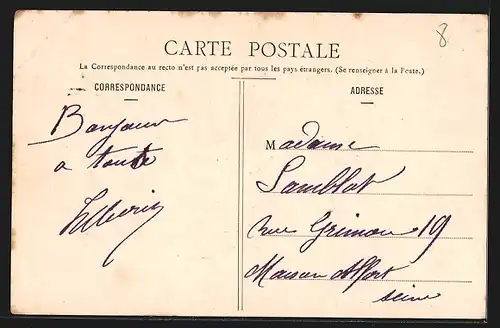 8
CARTE POSTALE
La Correspondance au recto n'est pas acceptée par tous les pays étrangers. (Se renseigner à la Poste.)
CORRESPONDANCE
ADRESSE
Bonjour
a toute
Madame
Samblat
rue Grimou 19
Maison Alfort
seine